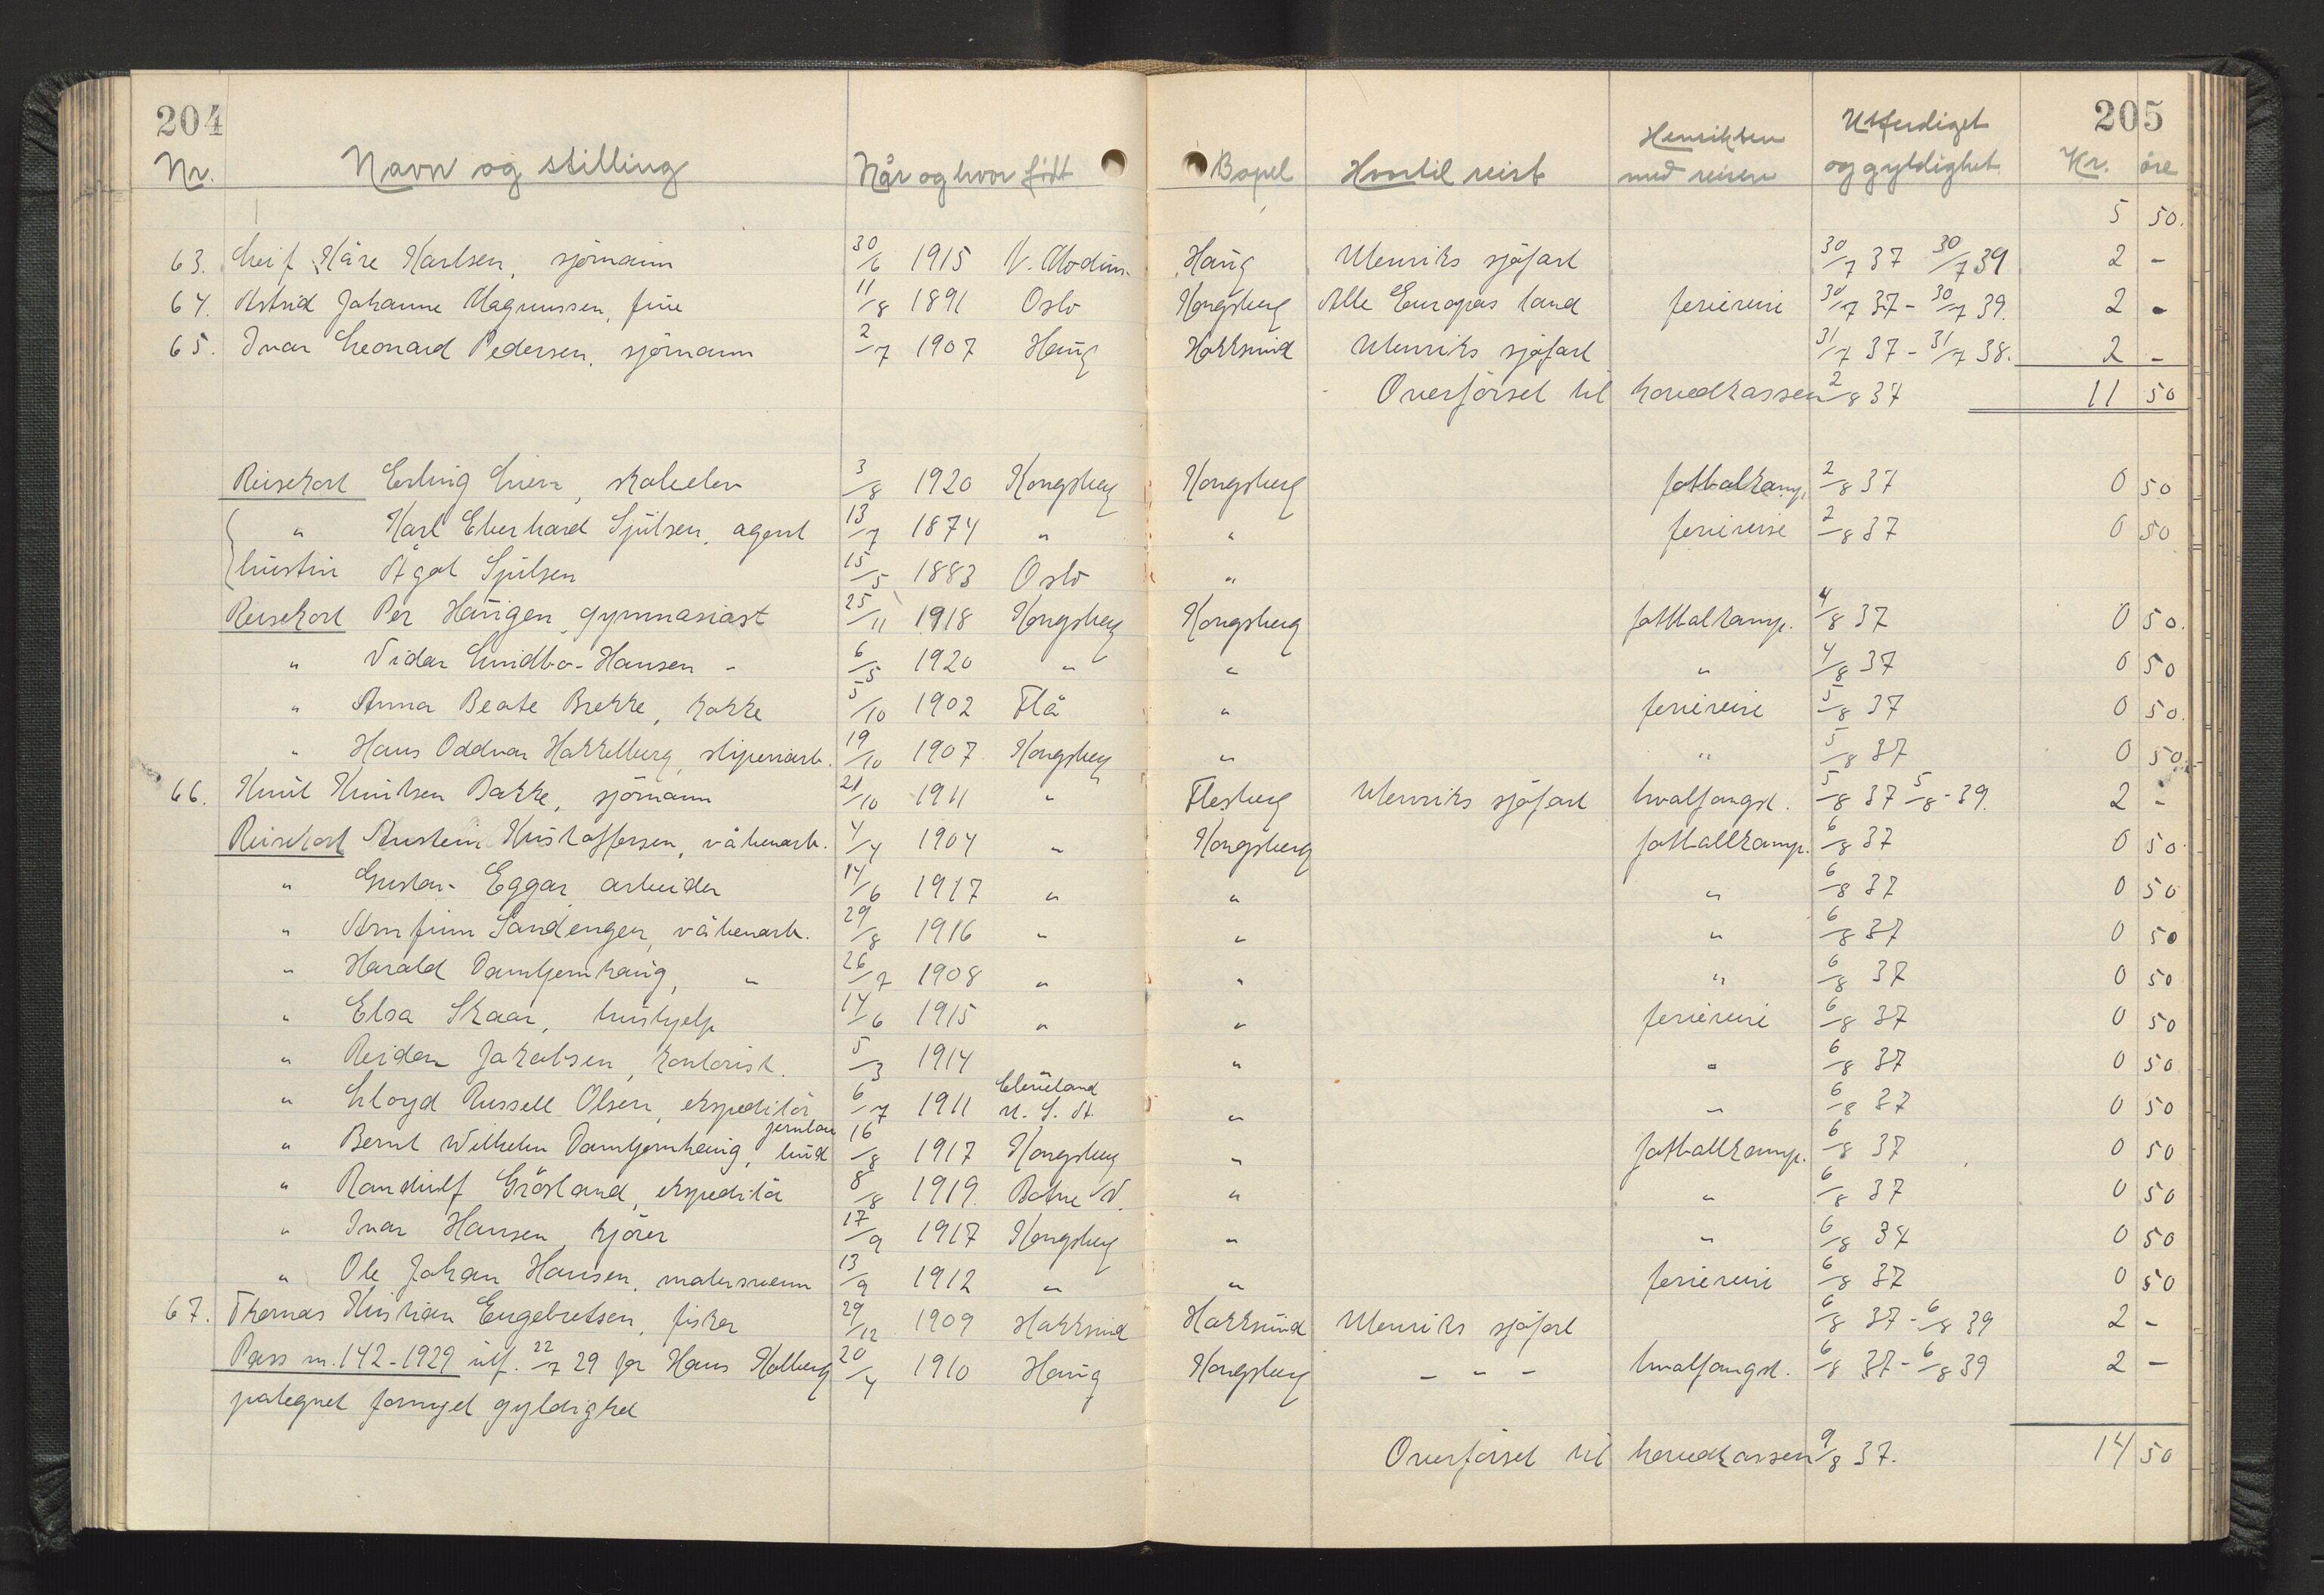 204 205
Nr. Navn og stilling Når og hvor født Bopel Hvortil reist Hensikten med reisen Utferdiget og gyldighet Kr. øre
5 50.
63. Leif Kåre Karlsen, sjømann 30/6 1915 N. Modum. Haug Utenriks sjøfart 30/7 37 30/7 39 2 -
64. Astrid Johanne Magnussen, frue 11/8 1891 Oslo Kongsberg Alle Europas land feriereise 30/7 37 - 30/7 39. 2 -
65. Ivar Leonard Pedersen, sjømann 2/7 1907 Haug Hokksund Utenriks sjøfart 31/7 37 - 31/7 38. 2 -
Overførsel til hovedkassen 2/8 37 11 50
Reisekort Erling Lien, skoleelev 3/8 1920 Kongsberg Kongsberg fotbalkamp. 2/8 37 0 50
" Karl Eberhard Sjulsen, agent 13/7 1874 " " feriereise 2/8 37 0 50
hustru Ågot Sjulsen 15/5 1883 Oslo "
Reisekort Per Haugen, gymnasiast 25/11 1918 Kongsberg Kongsberg fotbalkamp. 4/8 37 0 50.
" Vidar Lundbo-Hansen - 6/5 1920 " " " 4/8 37 0 50
" Anna Beate Brekke, kokke 5/10 1902 Flå " feriereise 5/8 37 0 50.
" Hans Oddvar Hakkelberg, sliperiarb. 19/10 1907 Kongsberg " " 5/8 37 0 50.
66. Knut Knutsen Bakke, sjømann 21/10 1911 " Flesberg Utenriks sjøfart hvalfangst. 5/8 37 5/8 - 39. 2 -
Reisekort Austein Kristoffersen, våbenarb. 4/4 1904 " Kongsberg fotballkamp. 6/8 37 0 50.
" Gustav Eggar, arbeider 14/6 1917 " " " 6/8 37 0 50
" Arnfinn Sandengen, våbenarb. 29/8 1916 " " " 6/8 37 0 50
" Harald Damtjernhaug, " 26/7 1908 " " " 6/8 37 0 50
" Elsa Skaar, hushjelp 14/6 1915 " " feriereise 6/8 37 0 50
" Reidar Jakobsen, kontorist. 5/3 1914 " " 6/8 37 0 50
" Lloyd Russell Olsen, ekspeditør, 6/7 1911 Cleveland U. S. A. " " 6/8 37 0 50
" Bernt Wilhelm Damtjernhaug, jernban bud 16/8 1917 Kongsberg " fotballkamp. 6/8 37 0 50
" Randulf Grösland, ekspeditör 8/8 1919. Botne V. " " 6/8 37 0 50
" Ivar Hansen, kjörer 17/9 1917 Kongsberg " " 6/8 37 0 50
" Ole Johan Hansen, malersvenn 13/9 1912 " " feriereise 6/8 37 0 50
67. Thomas Kristian Engebretsen, fisker 29/12 1909 Hokksund Hokksund Utenriks sjøfart 6/8 37 - 6/8 39 2 -
Pass nr. 142 - 1929 utf. 22/7 29 for Hans Kolberg 20/4 1910 Haug Kongsberg - - - hvalfangst. 6/8 37 - 6/8 39 2 -
påtegnet fornyet gyldighet
Overførsel til hovedkassen 9/8 37. 14 50